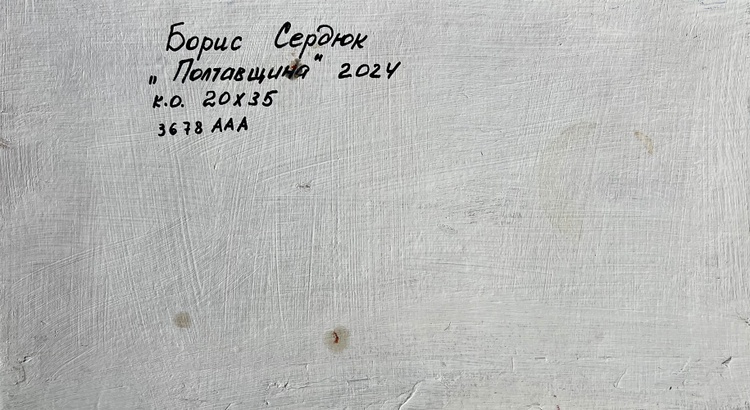 Борис Сердюк
„Полтавщина" 2024
к.о. 20х35
3678 ААА